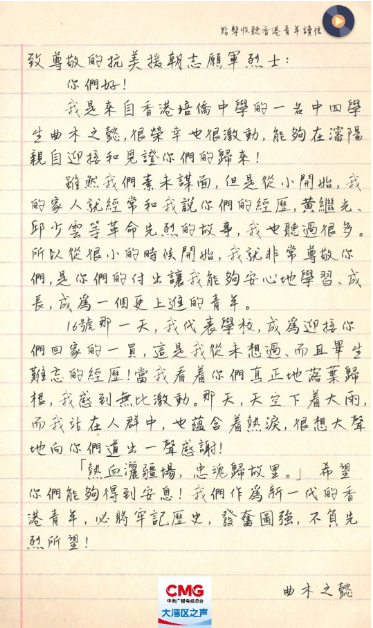 點擊收聽香港青年讀信
致尊敬的抗美援朝志願軍烈士：
你們好！
我是來自香港培僑中學的一名中四學
生曲木之懿，很榮幸也很激動，能夠在瀋陽
親自迎接和見證你們的歸來！
雖然我們素未謀面，但是從小開始，我
的家人就經常和我説你們的經歷，黃繼光、
邱少雲等革命先烈的故事，我也聽過很多。
所以從很小的時候開始，我就非常尊敬你
們，是你們的付出讓我能夠安心地學習、成
長，成為一個更上進的青年。
16號那一天，我代表學校，成為迎接你
們回家的一員，這是我從未想過、而且畢生
難忘的經歷！當我看着你們真正地落葉歸
根，我感到無比激動。那天，天空下着大雨，
而我站在人群中，也蘊含着熱淚，很想大聲
地向你們道出一聲感謝！
「熱血灑疆場，忠魂歸故里。」希望
你們能夠得到安息！我們作為新一代的香
港青年，必將牢記歷史，發奮圖強，不負先
烈所望！
曲木之懿
CMG
中央广播电视总台
大湾区之声